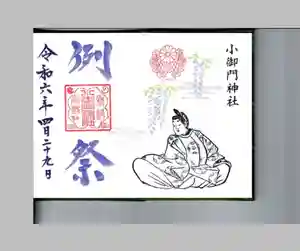 小御門神社
例祭
令和六年四月二十九日